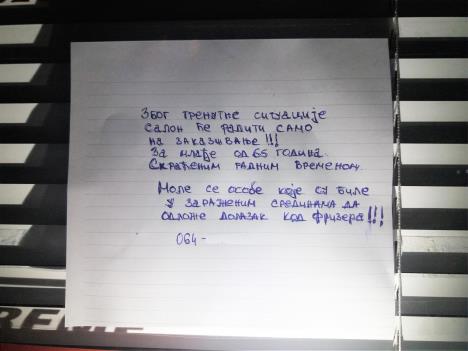 Због тренутне ситуације
салон ће радити само
на заказивање !!!
За млађе од 65 година.
Скраћеним радним временом.
Моле се особе које су биле
у зараженим срединама да
одложе долазак код фризера !!!
064-